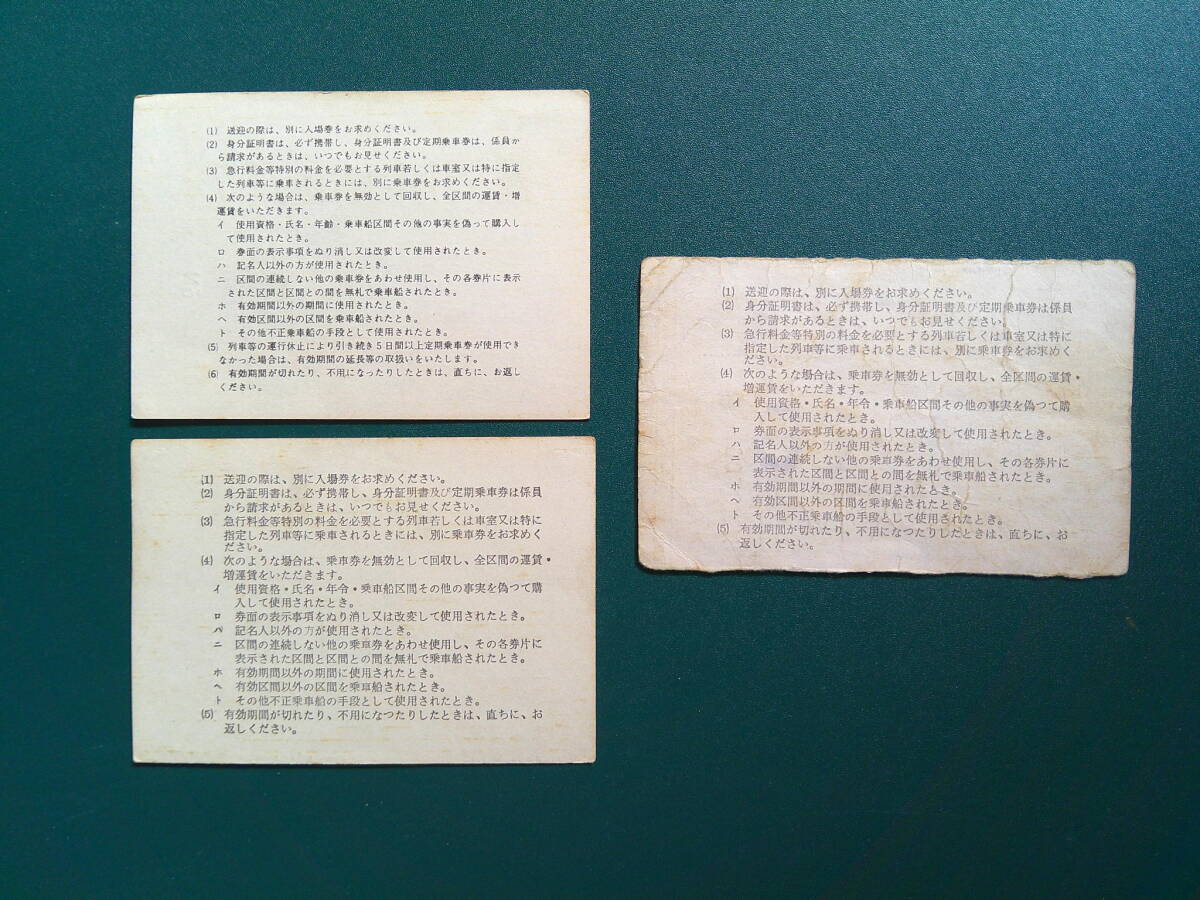 (1) 送迎の際は、別に入場券をお求めください。
(2) 身分証明書は、必ず携帯し、身分証明書及び定期乗車券は、係員か
ら請求があるときは、いつでもお見せください。
(3) 急行料金等特別の料金を必要とする列車若しくは車室又は特に指定
した列車等に乗車されるときには、別に乗車券をお求めください。
(4) 次のような場合は、乗車券を無効として回収し、全区間の運賃・増
運賃をいただきます。
イ 使用資格・氏名・年齢・乗車船区間その他の事実を偽って購入し
て使用されたとき。
ロ 券面の表示事項をぬり消し又は改変して使用されたとき。
ハ 記名人以外の方が使用されたとき。
ニ 区間の連続しない他の乗車券をあわせ使用し、その各券片に表示
された区間と区間との間を無札で乗車船されたとき。
ホ 有効期間以外の期間に使用されたとき。
ヘ 有効区間以外の区間を乗車船されたとき。
ト その他不正乗車船の手段として使用されたとき。
(5) 列車等の運行休止により引き続き5日間以上定期乗車券が使用でき
なかった場合は、有効期間の延長等の取扱いをいたします。
(6) 有効期間が切れたり、不用になったりしたときは、直ちに、お返し
ください。
(1) 送迎の際は、別に入場券をお求めください。
(2) 身分証明書は、必ず携帯し、身分証明書及び定期乗車券は係員
から請求があるときは、いつでもお見せください。
(3) 急行料金等特別の料金を必要とする列車若しくは車室又は特に
指定した列車等に乗車されるときには、別に乗車券をお求めく
ださい。
(4) 次のような場合は、乗車券を無効として回収し、全区間の運賃・
増運賃をいただきます。
イ 使用資格・氏名・年令・乗車船区間その他の事実を偽つて購
入して使用されたとき。
ロ 券面の表示事項をぬり消し又は改変して使用されたとき。
ハ 記名人以外の方が使用されたとき。
ニ 区間の連続しない他の乗車券をあわせ使用し、その各券片に
表示された区間と区間との間を無札で乗車船されたとき。
ホ 有効期間以外の期間に使用されたとき。
ヘ 有効区間以外の区間を乗車船されたとき。
ト その他不正乗車船の手段として使用されたとき。
(5) 有効期間が切れたり、不用になつたりしたときは、直ちに、お
返しください。
(1) 送迎の際は、別に入場券をお求めください。
(2) 身分証明書は、必ず携帯し、身分証明書及び定期乗車券は係員
から請求があるときは、いつでもお見せください。
(3) 急行料金等特別の料金を必要とする列車若しくは車室又は特に
指定した列車等に乗車されるときには、別に乗車券をお求めく
ださい。
(4) 次のような場合は、乗車券を無効として回収し、全区間の運賃・
増運賃をいただきます。
イ 使用資格・氏名・年令・乗車船区間その他の事実を偽つて購
入して使用されたとき。
ロ 券面の表示事項をぬり消し又は改変して使用されたとき。
ハ 記名人以外の方が使用されたとき。
ニ 区間の連続しない他の乗車券をあわせ使用し、その各券片に
表示された区間と区間との間を無札で乗車船されたとき。
ホ 有効期間以外の期間に使用されたとき。
ヘ 有効区間以外の区間を乗車船されたとき。
ト その他不正乗車船の手段として使用されたとき。
(5) 有効期間が切れたり、不用になつたりしたときは、直ちに、お
返しください。